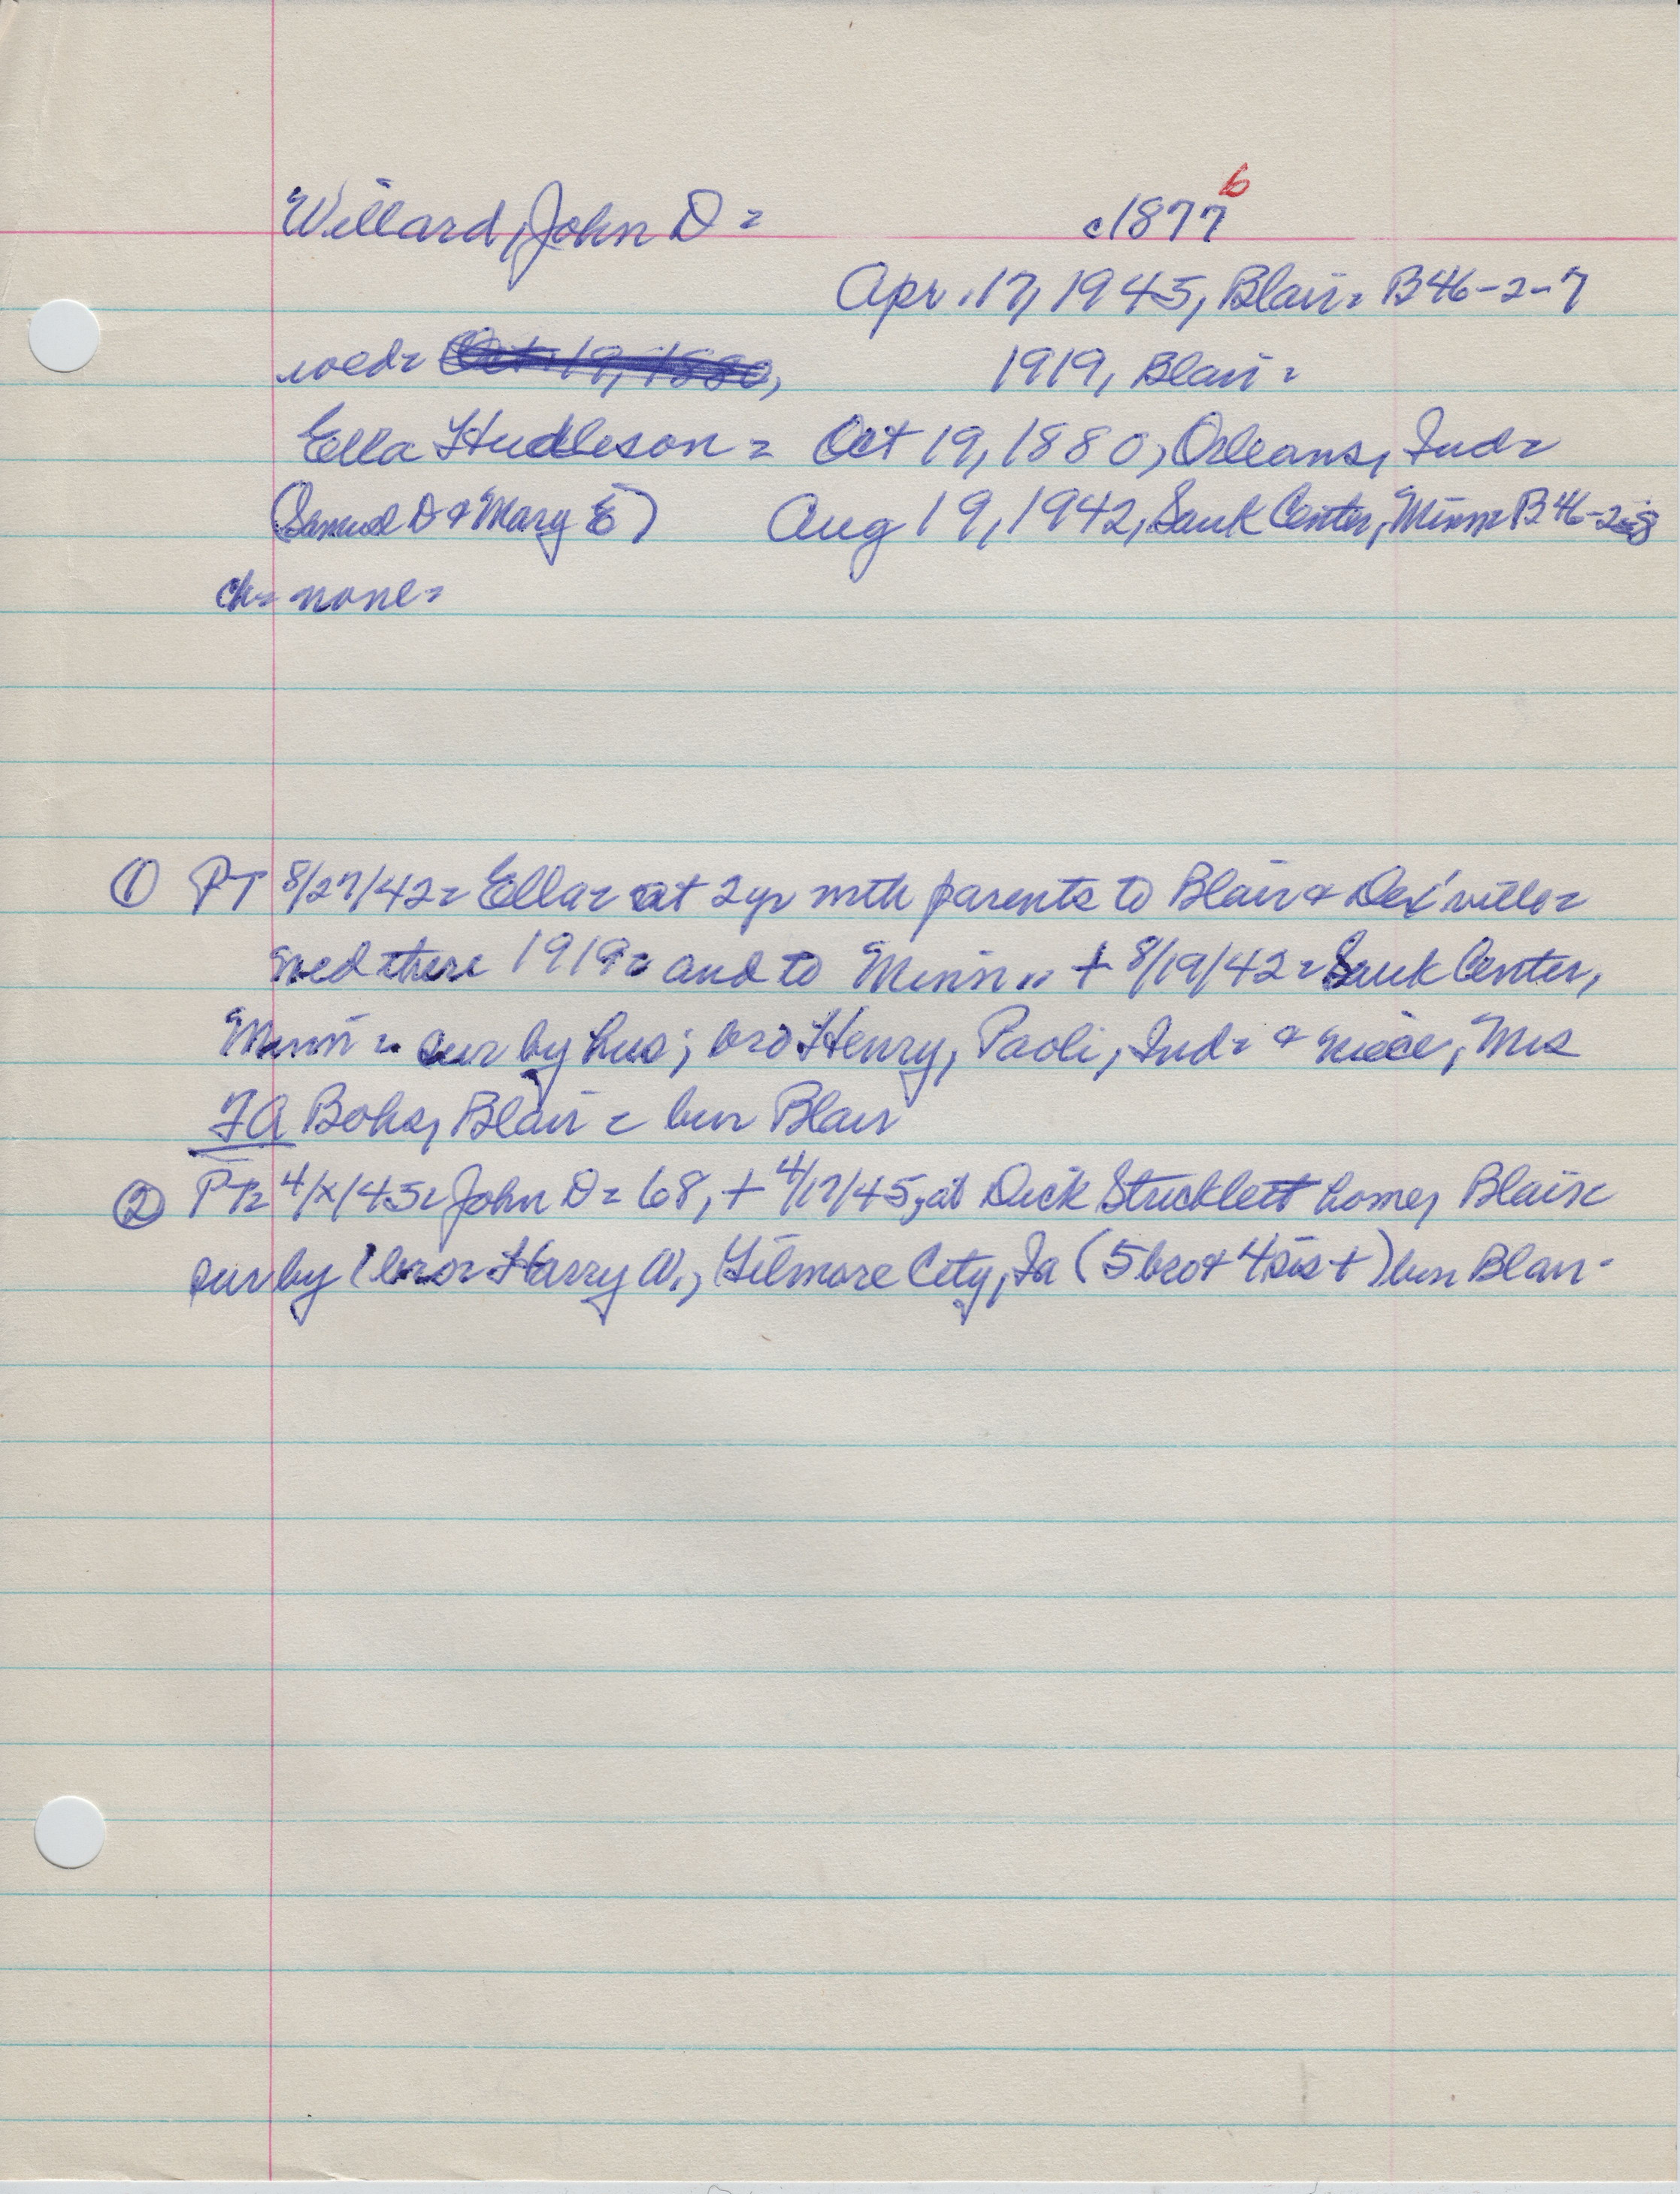 Willard, John D = c1877 6
Apr. 17, 1945, Blair = B46-2-7
wed = Oct 19, 1880, 1919, Blair =
Ella Hudleson = Oct 19, 1880, Orleans, Ind =
(Samuel D & Mary E) Aug 19, 1942, Sauk Center, Minn = B46-2-8
ch = none =
① PT 8/27/42 = Ella = at 2 yr with parents to Blair & Des'ville =
wed there 1919 = and to Minn = + 8/19/42 = Sauk Center,
Minn = sur by hus; bro Henry, Paoli, Ind = & niece, Mrs
FA Boks, Blair = bur Blair
② PT = 4/x/45 = John D = 68, + 4/17/45, at Dick Stricklett home, Blair =
sur by 1 bro = Harry W., Gilmore City, Ia (5 bro & 4 sis +) bur Blair -